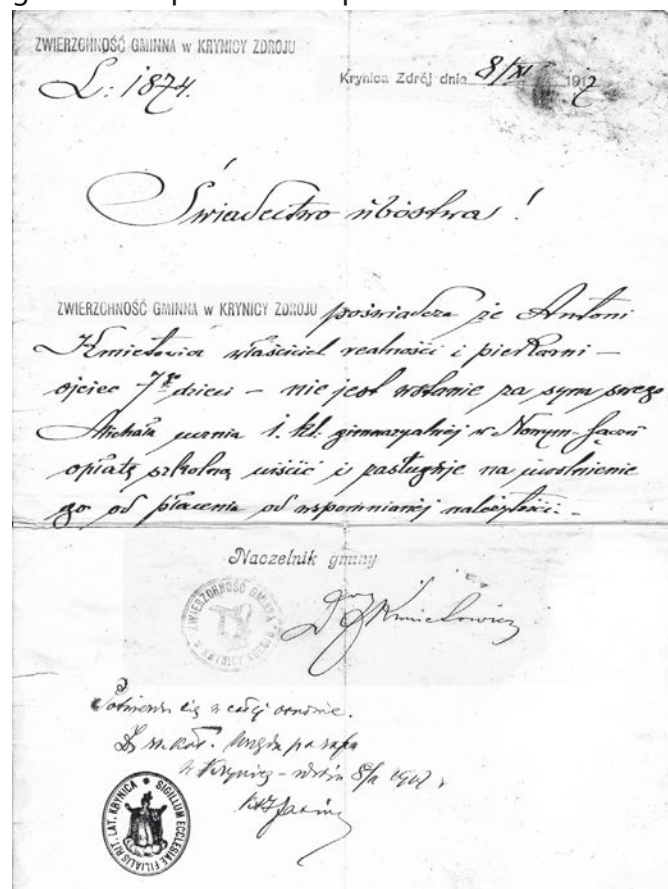 ZWIERZCHNOŚĆ GMINNA w KRYNICY ZDROJU
L: 1874.
Krynica Zdrój dnia 8/XI 1917
Świadectwo ubóstwa!
ZWIERZCHNOŚĆ GMINNA w KRYNICY ZDROJU poświadcza że Antoni
Kmietowicz właściciel realności i piekarni –
ojciec 7 dzieci – nie jest wstanie za syna swego
Michała ucznia 1. kl. gimnazyalnej w Nowym-Sączu
opłatę szkolną uiścić i zasługuje na uwolnienie
go od płacenia od wspomnianej należytości. –
Naczelnik gminy
ZWIERZCHNOŚĆ GMINNA w KRYNICY ZDROJU
Dr Kmietowicz
w całej osnowie.
Urząd
w Krynicy
SIGILLUM ECCLESIAE FILIALIS RIT. LAT. KRYNICA